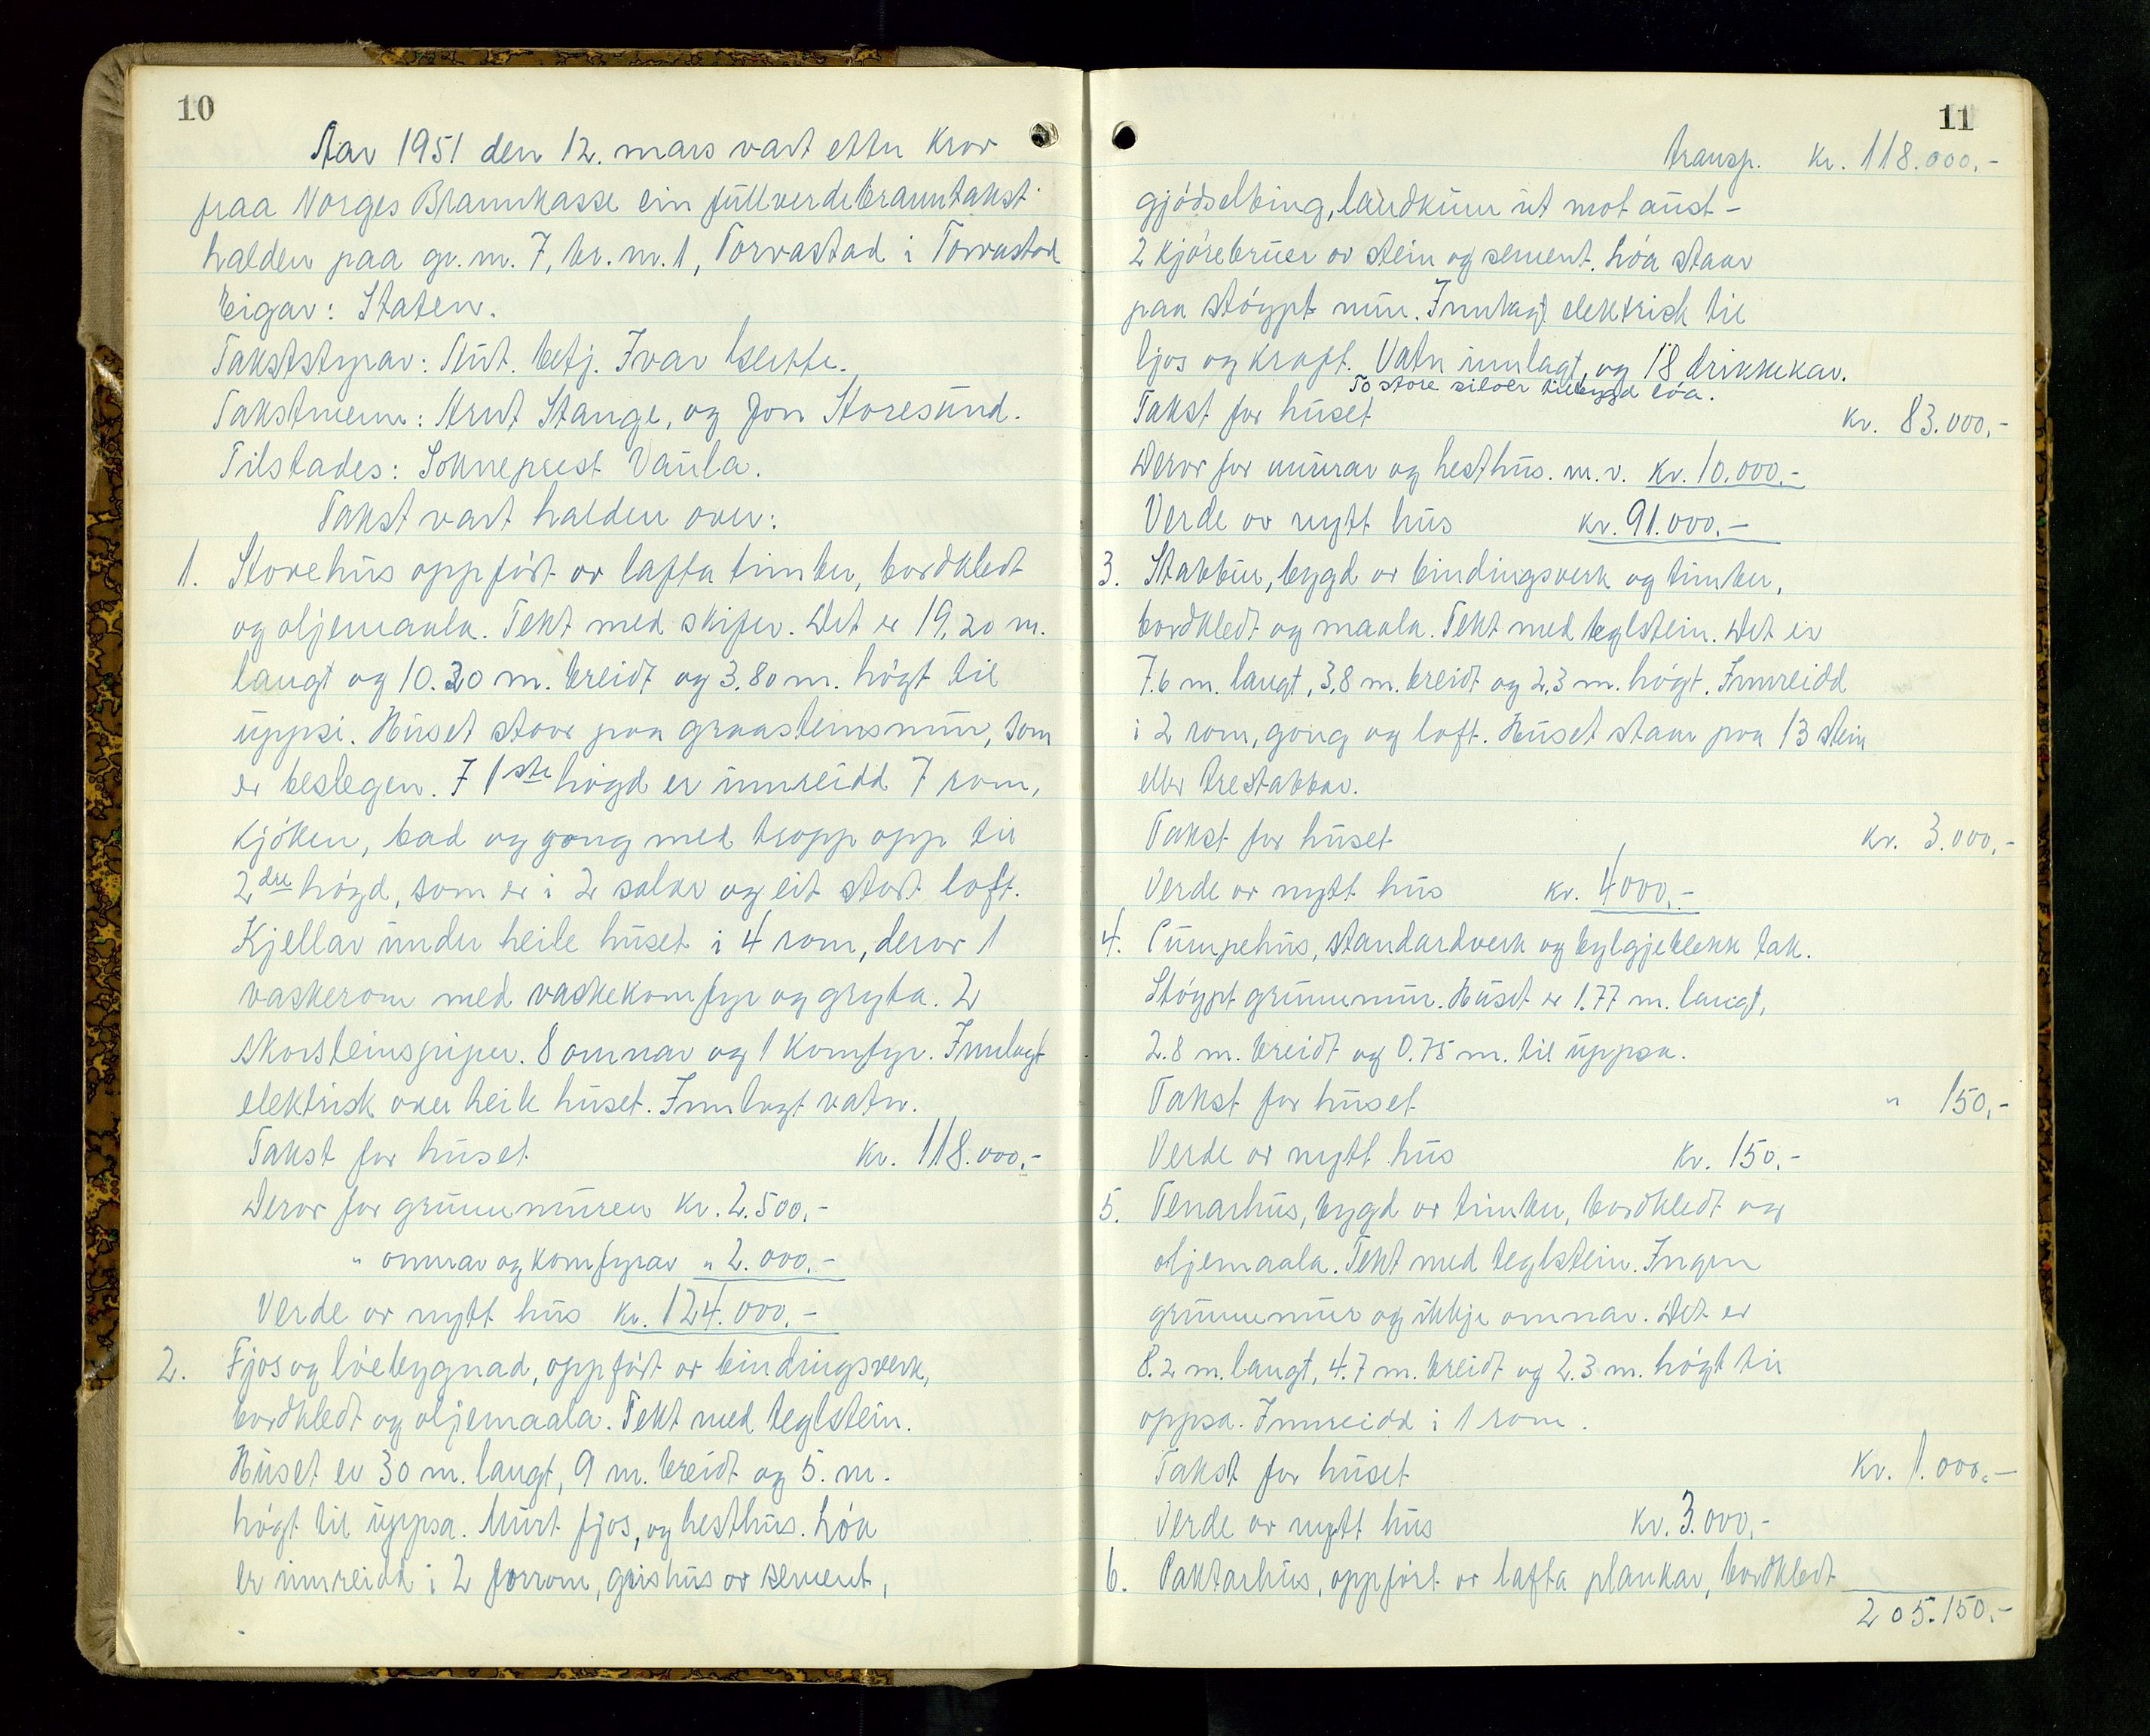 10
Aar 1951 den 12. mars vart etter krav
fraa Norges Brannkasse ein fullverdebranntakst
halden paa gr. nr. 7, br. nr. 1, Torvastad i Torvastad
Eigar: Staten.
Takststyrar: Aut. betj. Ivar
Takstmenn: Arnt Stange, og Jon Storesund.
Tilstades: Sokneprest Vaula.
Takst vart halden over:
1. Storehus oppført av lafta timber, bordkledt
og oljemaala. Tekt med skifer. Det er 19,20 m.
langt og 10.30 m. breidt og 3.80 m. høgt til
uppsi. Huset staar paa graasteinsmur, som
er beslegen. I 1ste høgd er innreidd 7 rom,
kjøken, bad og gong med tropp opp til
2dre høgd, som er i 2 salar og eit stort loft.
Kjellar under heile huset i 4 rom, derav 1
vaskerom med vaskekomfyr og gryta. 2
skorsteinspiper. 8 omnar og 1 komfyr. Innlagt
elektrisk over heile huset. Innlagt vatn.
Takst for huset kr. 118.000,-
Derav for grunnmuren kr. 2.500,-
" omnar og komfyrar " 2.000,-
Verde av nytt hus kr. 124.000,-
2. Fjos og løebygnad, oppført av bindingsverk,
bordkledt og oljemaala. Tekt med teglstein.
Huset er 30 m. langt, 9 m. breidt og 5. m.
høgt til uppsa. Murt fjos, og hesthus. Løa
er innreidd i 2 forrom, grishus av sement,
11
transp. kr. 118.000,-
gjødselbing, landkum ut mot aust-
2 kjørebruer av stein og sement. Løa staar
paa støypt mur. Innlagt elektrisk til
ljos og kraft. Vatn innlagt, og 18 drikkekar.
To store siloer tilbygd løa.
Takst for huset kr. 83.000,-
Derav for murar og hesthus. m.v. kr. 10.000,-
Verde av nytt hus kr. 91.000,-
3. Stabbur, bygd av bindingsverk og timber,
bordkledt og maala. Tekt med teglstein. Det er
7.6 m. langt, 3,8 m. breidt og 2,3 m. høgt. Innreidd
i 2 rom, gong og loft. Huset staar paa 13 stein
eller trestabbar.
Takst for huset kr. 3.000,-
Verde av nytt hus kr. 4000,-
4. Pumpehus, standardverk og bylgjeblekk tak.
Støypt grunnmur. Huset er 1.77 m. langt,
2.8 m. breidt og 0.75 m. til uppsa.
Takst for huset " 150,-
Verde av nytt hus kr. 150,-
5. Tenarhus, bygd av timber, bordkledt og
oljemaala. Tekt med teglstein. Ingen
grunnmur og ikkje omnar. Det er
8.2 m. langt, 4.7 m. breidt og 2.3 m. høgt til
oppsa. Innreidd i 1 rom.
Takst for huset kr. 1.000,-
Verde av nytt hus kr. 3.000,-
6. Paktarhus, oppført av lafta plankar, bordkledt
205.150,-